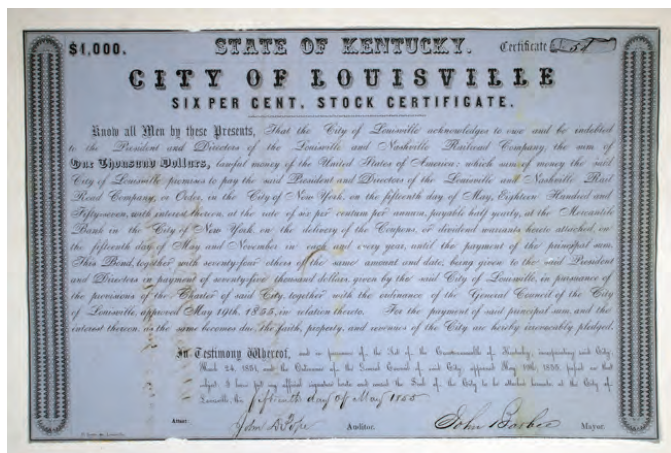 $1,000. STATE OF KENTUCKY. Certificate 54
CITY OF LOUISVILLE
SIX PER CENT. STOCK CERTIFICATE.
Know all Men by these Presents, That the City of Louisville acknowledges to owe and be indebted
to the President and Directors of the Louisville and Nashville Railroad Company, the sum of
One Thousand Dollars, lawful money of the United States of America: which sum of money the said
City of Louisville promises to pay the said President and Directors of the Louisville and Nashville Rail
Road Company, or Order, in the City of New York, on the fifteenth day of May, Eighteen Hundred and
Fifty-seven, with interest thereon, at the rate of six per centum per annum, payable half yearly, at the Mercantile
Bank in the City of New York, on the delivery of the Coupons, or dividend warrants hereto attached, on
the fifteenth day of May and November in each and every year, until the payment of the principal sum.
This Bond, together with seventy-four others of the same amount and date, being given to the said President
and Directors in payment of seventy-five thousand dollars given by the said City of Louisville, in pursuance of
the provisions of the Charter of said City, together with the ordinance of the General Council of the City
of Louisville, approved May 19th, 1855, in relation thereto. For the payment of said principal sum, and the
interest thereon, as the same becomes due, the faith, property, and revenues of the City are hereby irrevocably pledged.
In Testimony Whereof, and in pursuance of the Act of the Commonwealth of Kentucky, incorporating said City,
March 24, 1851, and the Ordinance of the General Council of said City, approved May 19th, 1855, on that
subject, I have put my official signature hereto and caused the Seal of the City to be attached hereunto at the City of
Louisville, this fifteenth day of May 1855
Attest: John D Pope Auditor. John Barbee Mayor.